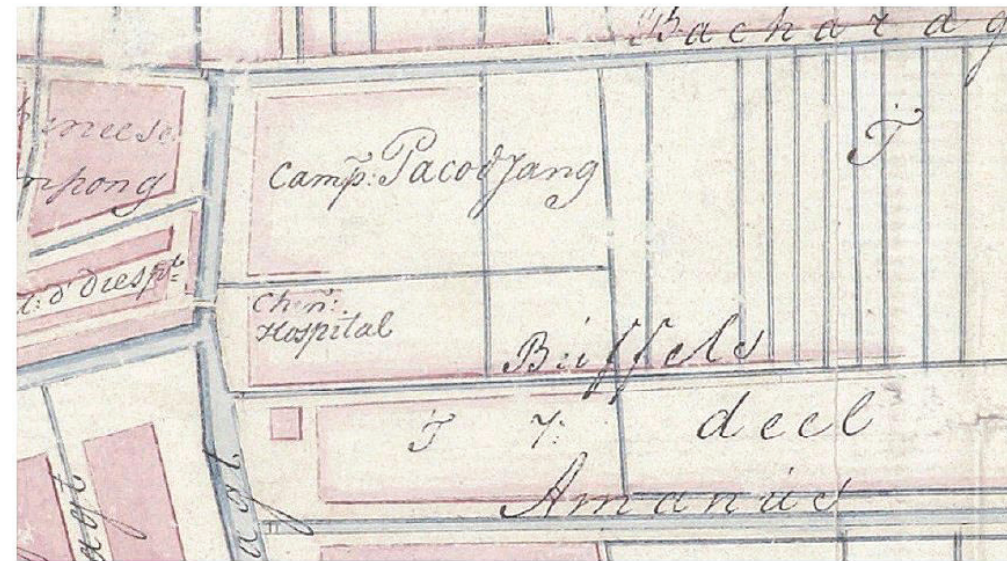 Bacharag
Chineese
Campong
Camp: Pacodjang
T
Chin:
Hospital
Buffels
deel
Amanus
agt
agt